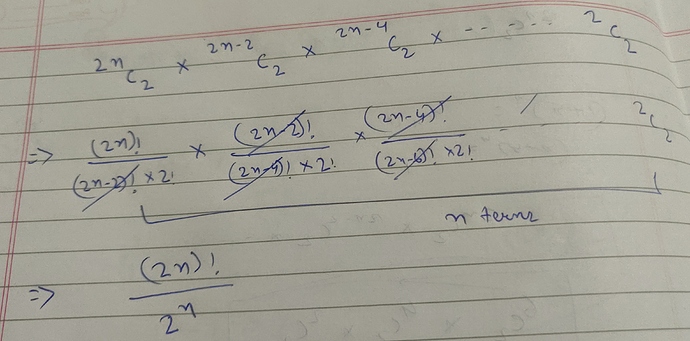 ²ⁿC₂ × ²ⁿ⁻²C₂ × ²ⁿ⁻⁴C₂ × ------- ²C₂
=> (2n)!/((2n-2)! × 2!) × (2n-2)!/((2n-4)! × 2!) × (2n-4)!/((2n-6)! × 2!) - / ²C₂
n terms
=> (2n)!/2ⁿ